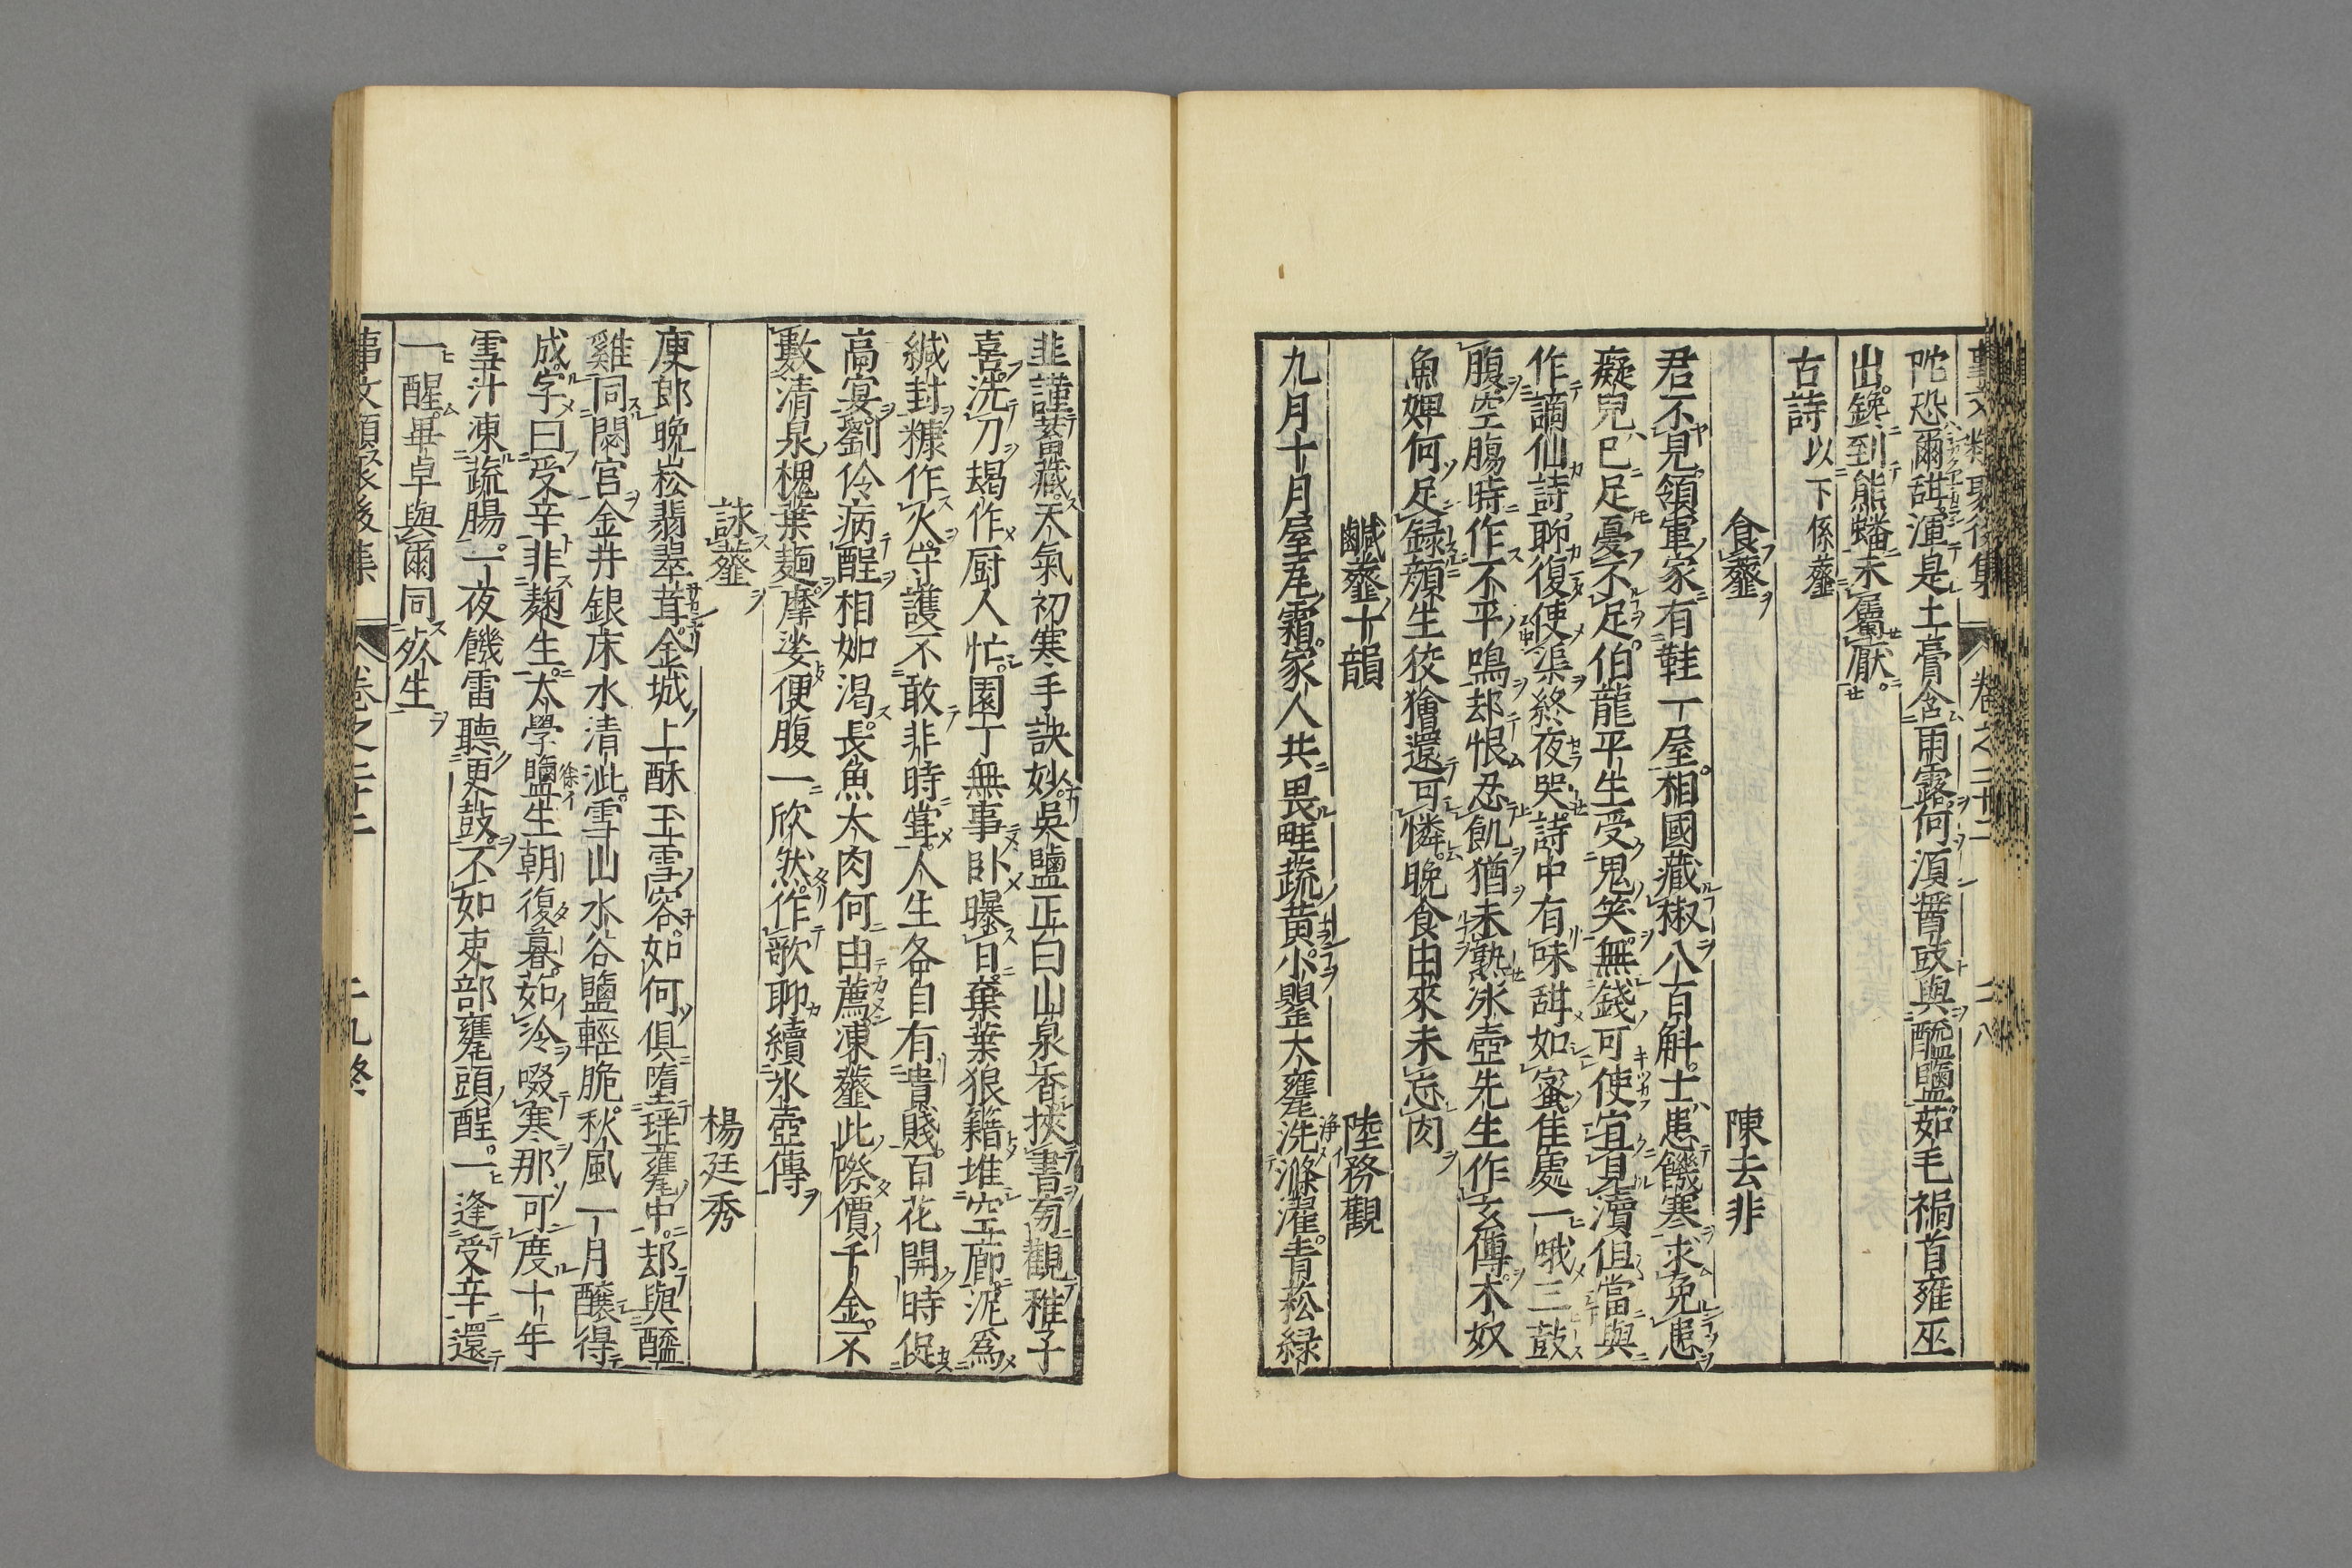 事文類聚後集 卷之二十二 二八
陀恐爾甜渾是土膏含雨露何湏醬豉與醯鹽茹毛禍首雍巫
出鑱到熊蟠未屬厭
古詩以下係虀
食虀 陳去非
君不見領軍家有鞋一屋相國藏椒八百斛士患饑寒求免患
癡兒已足憂不足伯龍平生受鬼笑無錢可使宜見瀆但當與
作謫仙詩聊復使渠終夜哭詩中有味甜如蜜佳處一哦三鼓
腹空腸時作不平鳴却恨忍飢猶未熟冰壺先生作玄傳木奴
魚婢何足録顏生狡獪還可憐晚食由來未忘肉
鹹虀十韻 陸務觀
九月十月屋瓦霜家人共畏畦蔬黃小罌大甕洗滌濯青菘緑
韭謹蓄藏天氣初寒手訣妙吳鹽正白山泉香挾書旁觀稚子
喜洗刀竭作厨人忙園丁無事卧曝日棄葉狼籍堆空廊泥為
緘封糠作火守護不敢非時甞人生各自有貴賤百花開時促
高宴劉伶病酲相如渴長魚大肉何由薦凍虀此際價千金不
數清泉槐葉麵摩挲便腹一欣然作歌聊續冰壺傳
詠虀 楊廷秀
庾郎晚崧翡翠茸金城上酥玉雪容如何俱墮瑳甕中却與醯
雞同閟宮金井銀床水清泚雪山水谷鹽輕脆秋風一月釀得
成字曰受辛非麹生太學鹽生朝復暮茹冷啜寒那可度十年
雪汁凍蔬腸一夜饑雷聽更鼓不如吏部甕頭酲一逢受辛還
一醒畢卓與爾同死生
事文類聚後集 卷之二十二 二九終